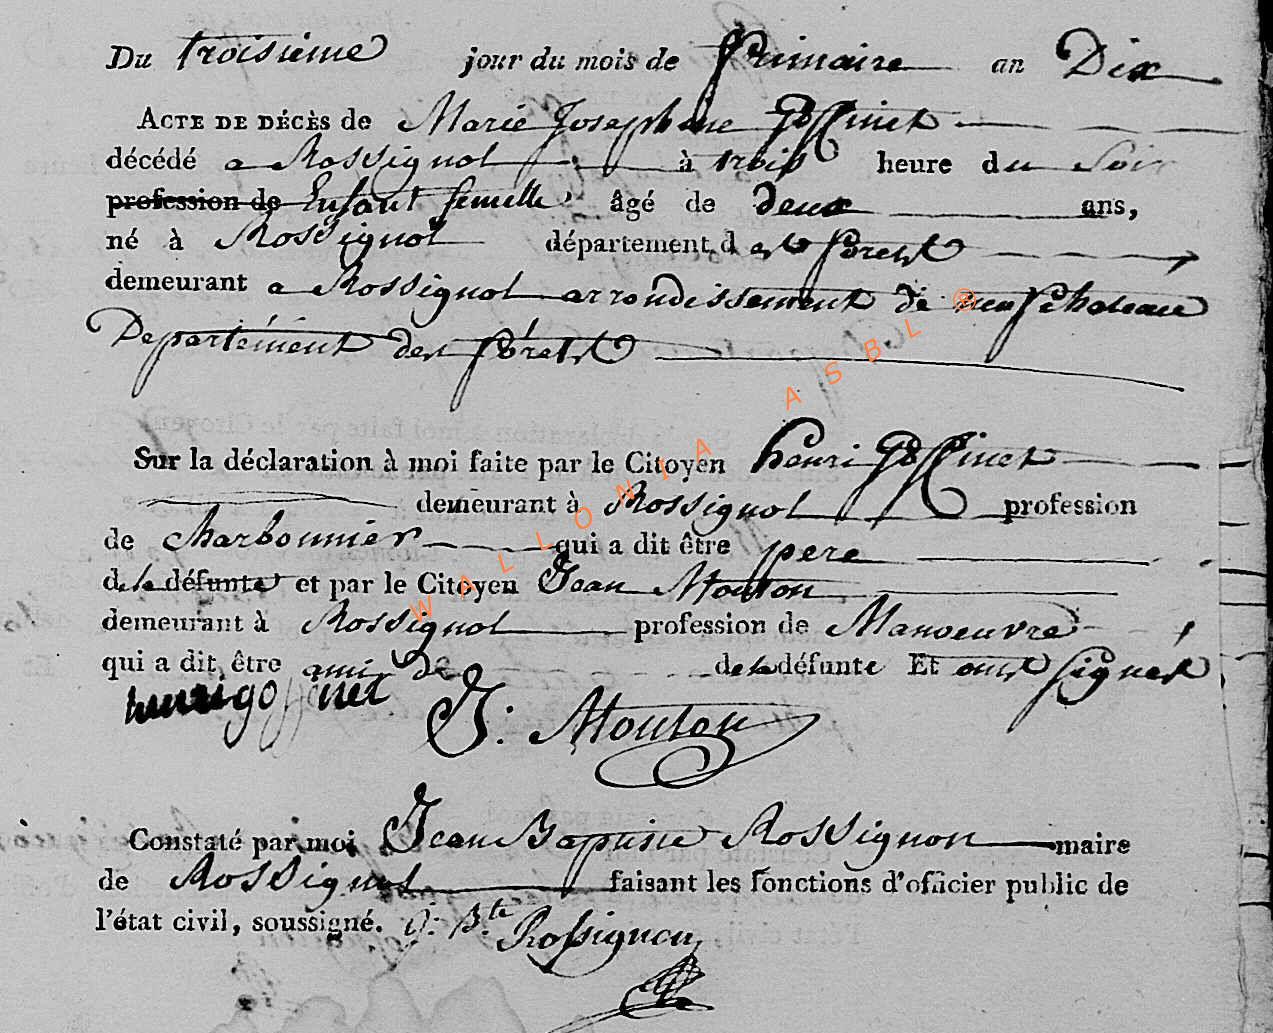 Du troisieme jour du mois de frimaire an Dix
ACTE DE DÉCÈS de Marie Josephine Goffinet
décédé a Rossignol à trois heure du Soir
profession de Enfant femelle âgé de deux ans,
né à Rossignol département des forests
demeurant a Rossignol arrondissement de neufchateau
Departément des foréts
Sur la déclaration à moi faite par le Citoyen henri Goffinet
demeurant à Rossignol profession
de charbonnier qui a dit être pere
de la défunte et par le Citoyen Jean Mouton
demeurant à Rossignol profession de Manoeuvre
qui a dit être ami de de la défunte Et ont signés
henri goffinet J: Mouton
Constaté par moi Jean Baptiste Rossignon maire
de Rossignol faisant les fonctions d'officier public de
l'état civil, soussigné. J: B.te Rossignon
WALLONIA ASBL ®